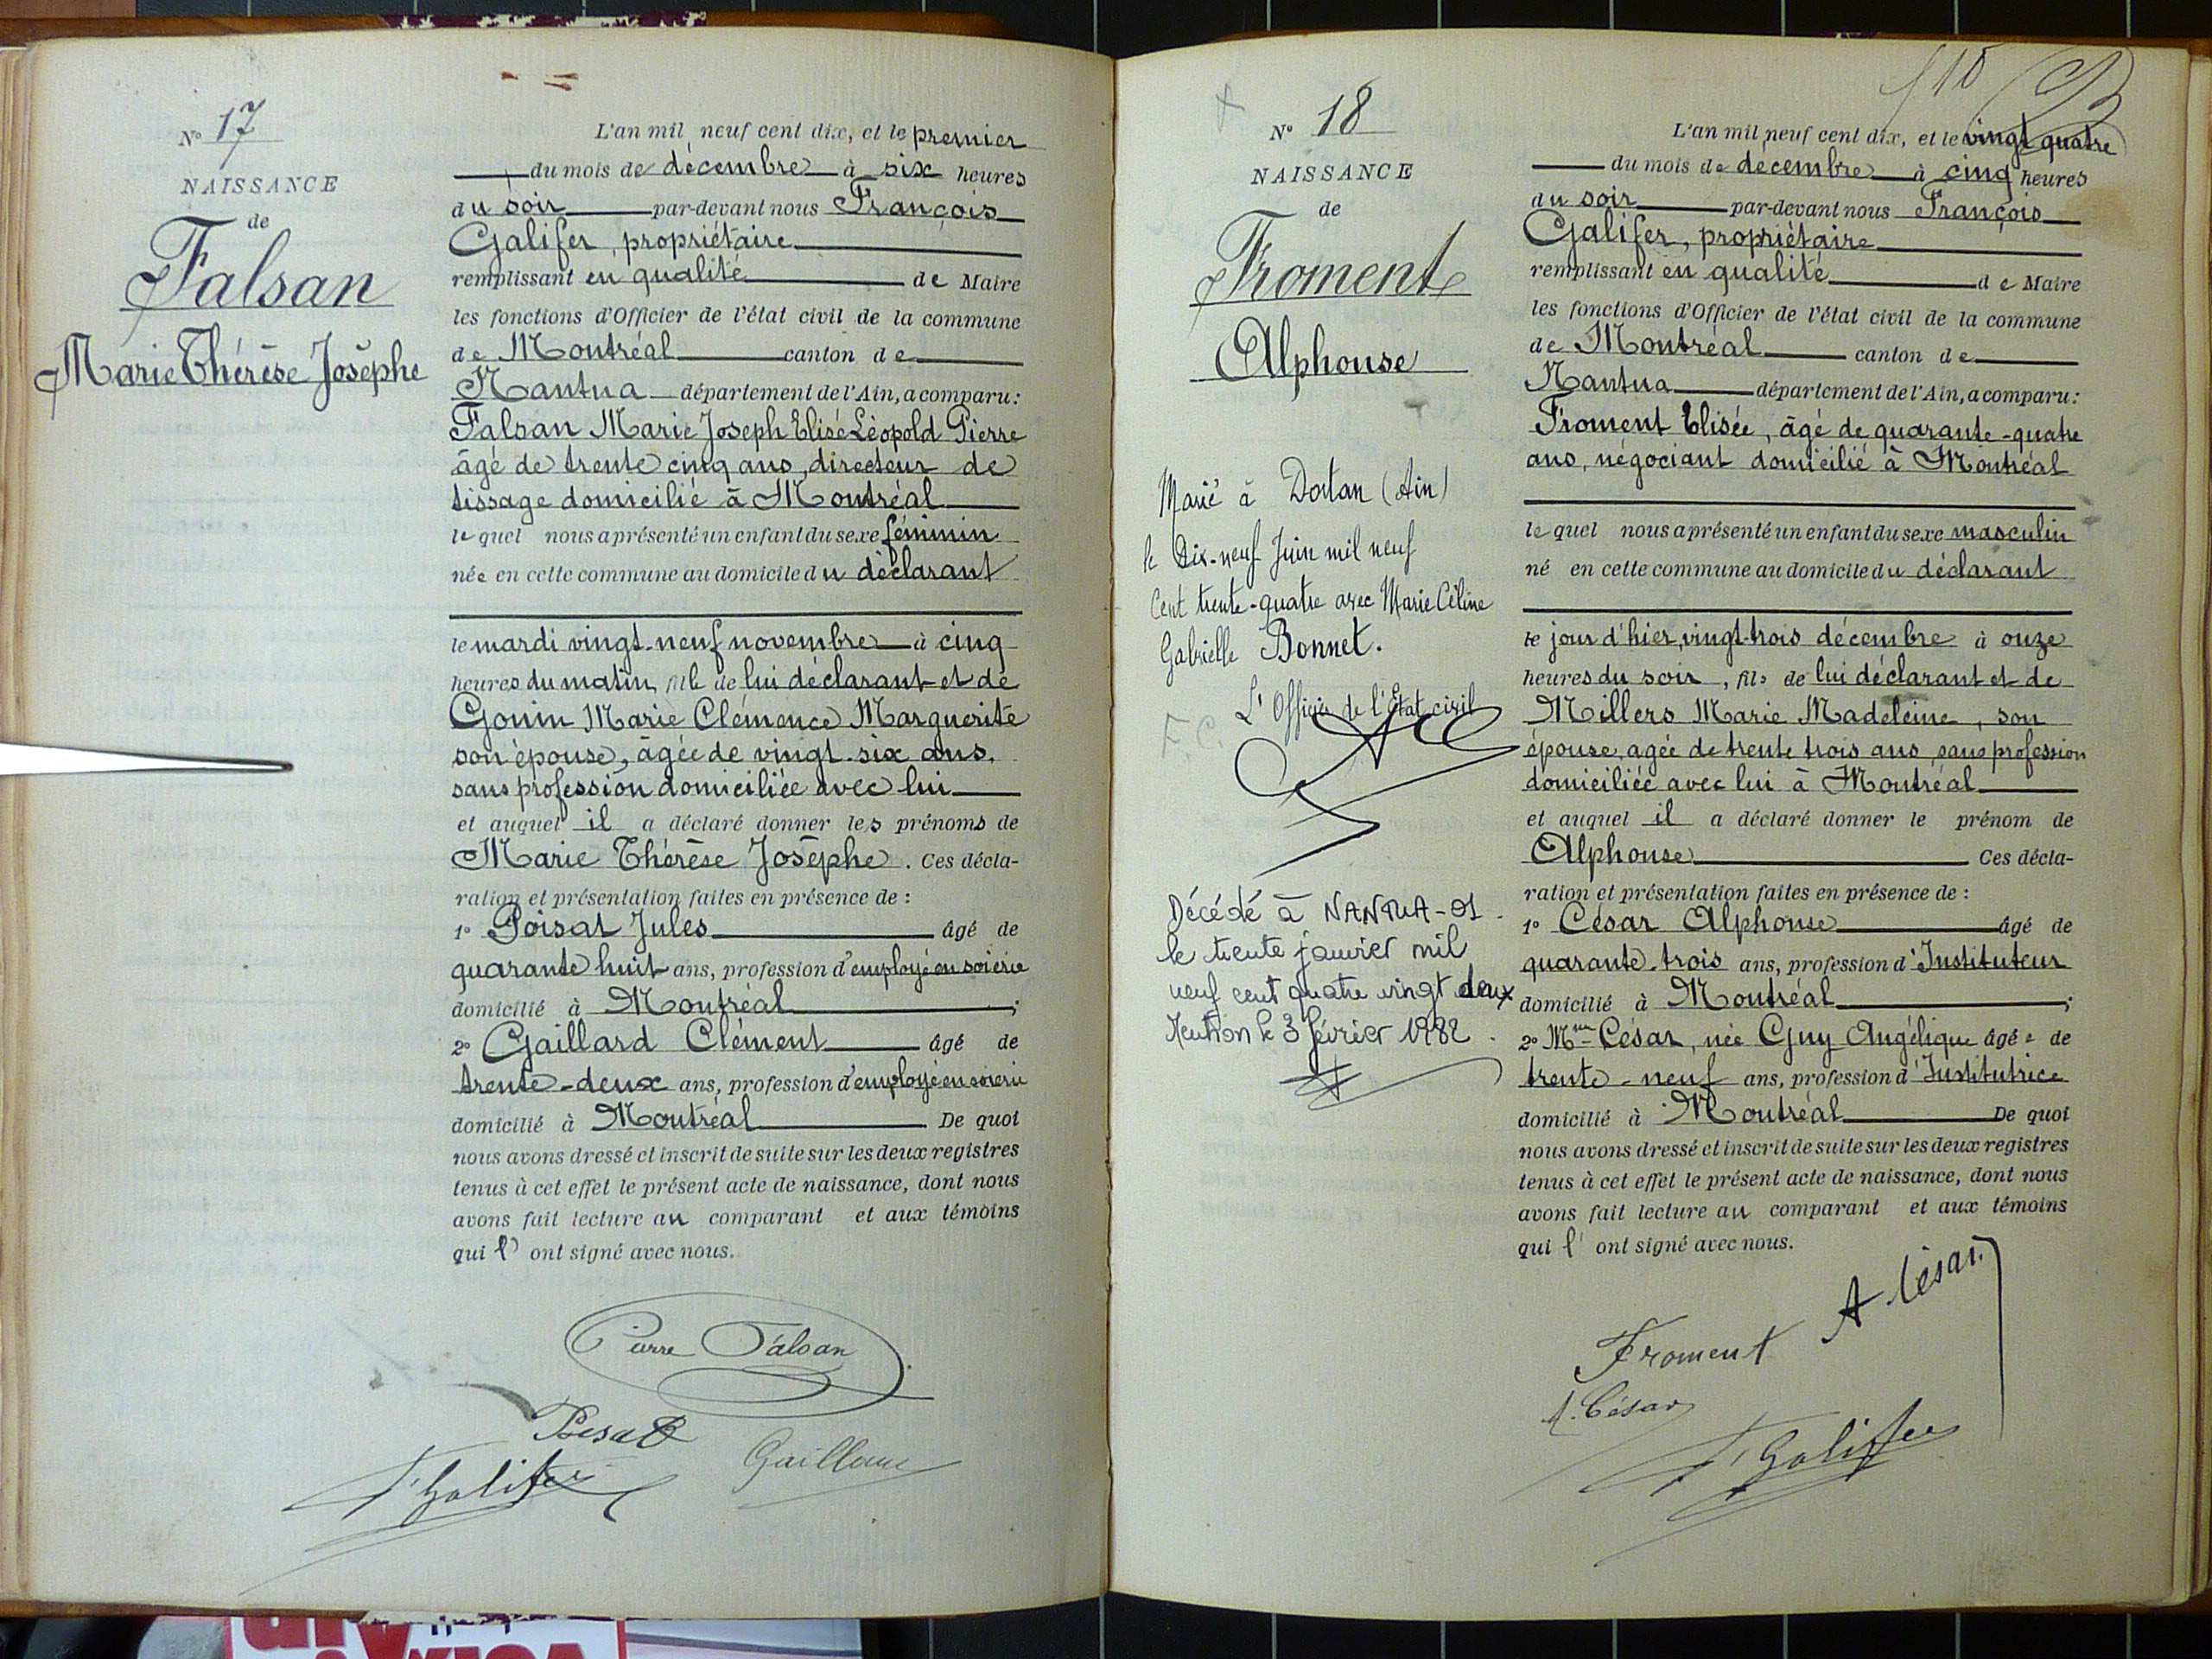 N° 17
NAISSANCE
de
Falsan
Marie Thérèse Josèphe
L'an mil neuf cent dix, et le premier
du mois de décembre à six heures
du soir par-devant nous François
Galifer, propriétaire
remplissant en qualité de Maire
les fonctions d'Officier de l'état civil de la commune
de Montréal canton de
Nantua département de l'Ain, a comparu:
Falsan Marie Joseph Elisé Léopold Pierre
âgé de trente cinq ans, directeur de
tissage domicilié à Montréal
le quel nous a présenté un enfant du sexe féminin
née en cette commune au domicile du déclarant
le mardi vingt-neuf novembre à cinq
heures du matin, fille de lui déclarant et de
Gonin Marie Clémence Marguerite
son épouse, âgée de vingt-six ans,
sans profession domiciliée avec lui
et auquel il a déclaré donner les prénoms de
Marie Thérèse Josèphe. Ces décla-
ration et présentation faites en présence de :
1° Poisat Jules âgé de
quarante huit ans, profession d'employé en soierie
domicilié à Montréal ;
2° Gaillard Clément âgé de
trente-deux ans, profession d'employé en soierie
domicilié à Montréal De quoi
nous avons dressé et inscrit de suite sur les deux registres
tenus à cet effet le présent acte de naissance, dont nous
avons fait lecture au comparant et aux témoins
qui l' ont signé avec nous.
Pierre Falsan
Poisat
Gaillard
F. Galifer
110
N° 18
NAISSANCE
de
Froment
Alphonse
Marié à Dortan (Ain)
le Dix-neuf Juin mil neuf
Cent trente-quatre avec Marie Céline
Gabrielle Bonnet.
L'Officier de l'Etat civil
F.C.
Décédé à NANTUA-01
le trente janvier mil
neuf cent quatre vingt deux
Mention le 3 février 1982.
L'an mil neuf cent dix, et le vingt quatre
du mois de décembre à cinq heures
du soir par-devant nous François
Galifer, propriétaire
remplissant en qualité de Maire
les fonctions d'Officier de l'état civil de la commune
de Montréal canton de
Nantua département de l'Ain, a comparu:
Froment Elisée, âgé de quarante-quatre
ans, négociant domicilié à Montréal
le quel nous a présenté un enfant du sexe masculin
né en cette commune au domicile du déclarant
le jour d'hier, vingt-trois décembre à onze
heures du soir, fils de lui déclarant et de
Millers Marie Madeleine, son
épouse, agée de trente trois ans, sans profession
domiciliée avec lui à Montréal
et auquel il a déclaré donner le prénom de
Alphonse Ces décla-
ration et présentation faites en présence de :
1° César Alphonse âgé de
quarante-trois ans, profession d'Instituteur
domicilié à Montréal ;
2° Mme César, née Guy Angélique âgée de
trente-neuf ans, profession d'Institutrice
domicilié à Montréal De quoi
nous avons dressé et inscrit de suite sur les deux registres
tenus à cet effet le présent acte de naissance, dont nous
avons fait lecture au comparant et aux témoins
qui l' ont signé avec nous.
A. César
Froment
A. César
F. Galifer